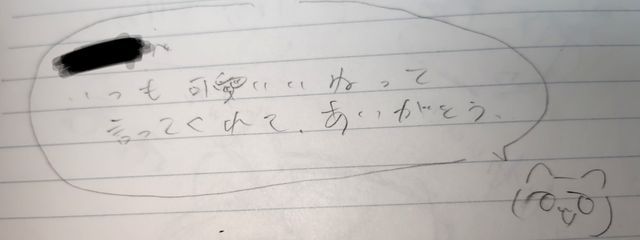 いつも可愛いいねって
言ってくれて、ありがとう、